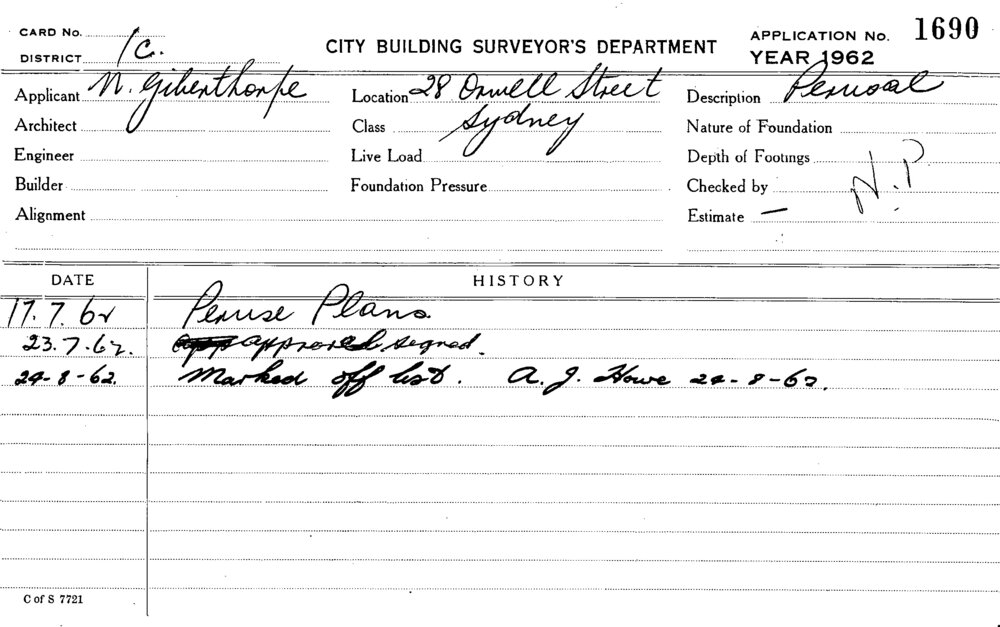 CARD No.
DISTRICT 1C.
CITY BUILDING SURVEYOR'S DEPARTMENT
APPLICATION No. 1690
YEAR 1962
Applicant N. Gibenthorpe
Location 28 Orwell Street
Description Perusal
Architect
Class Sydney
Nature of Foundation
Engineer
Live Load
Depth of Footings
Builder
Foundation Pressure
Checked by N.P
Alignment
Estimate —
DATE HISTORY
17.7.62 Peruse Plans.
23.7.62. approved signed.
24-8-62. Marked off list. A. J. Howe 24-8-62.
C of S 7721